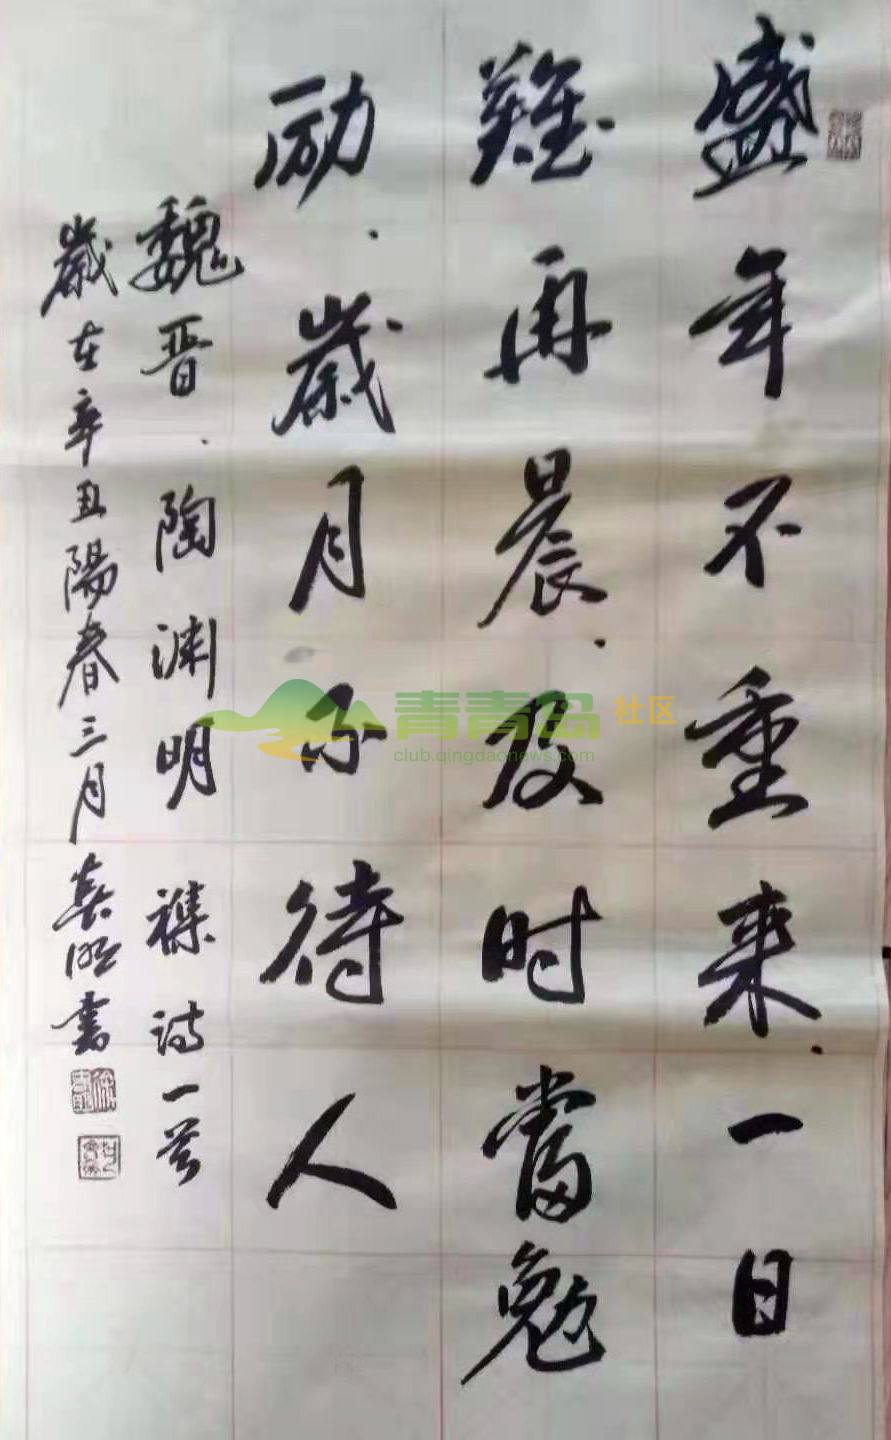 盛年不重来.一日
難再晨.及时當勉
励.歲月不待人
魏晋.陶渊明襍诗一首
歲在辛丑陽春三月 书
青青岛社区
club.qingdaonews.com